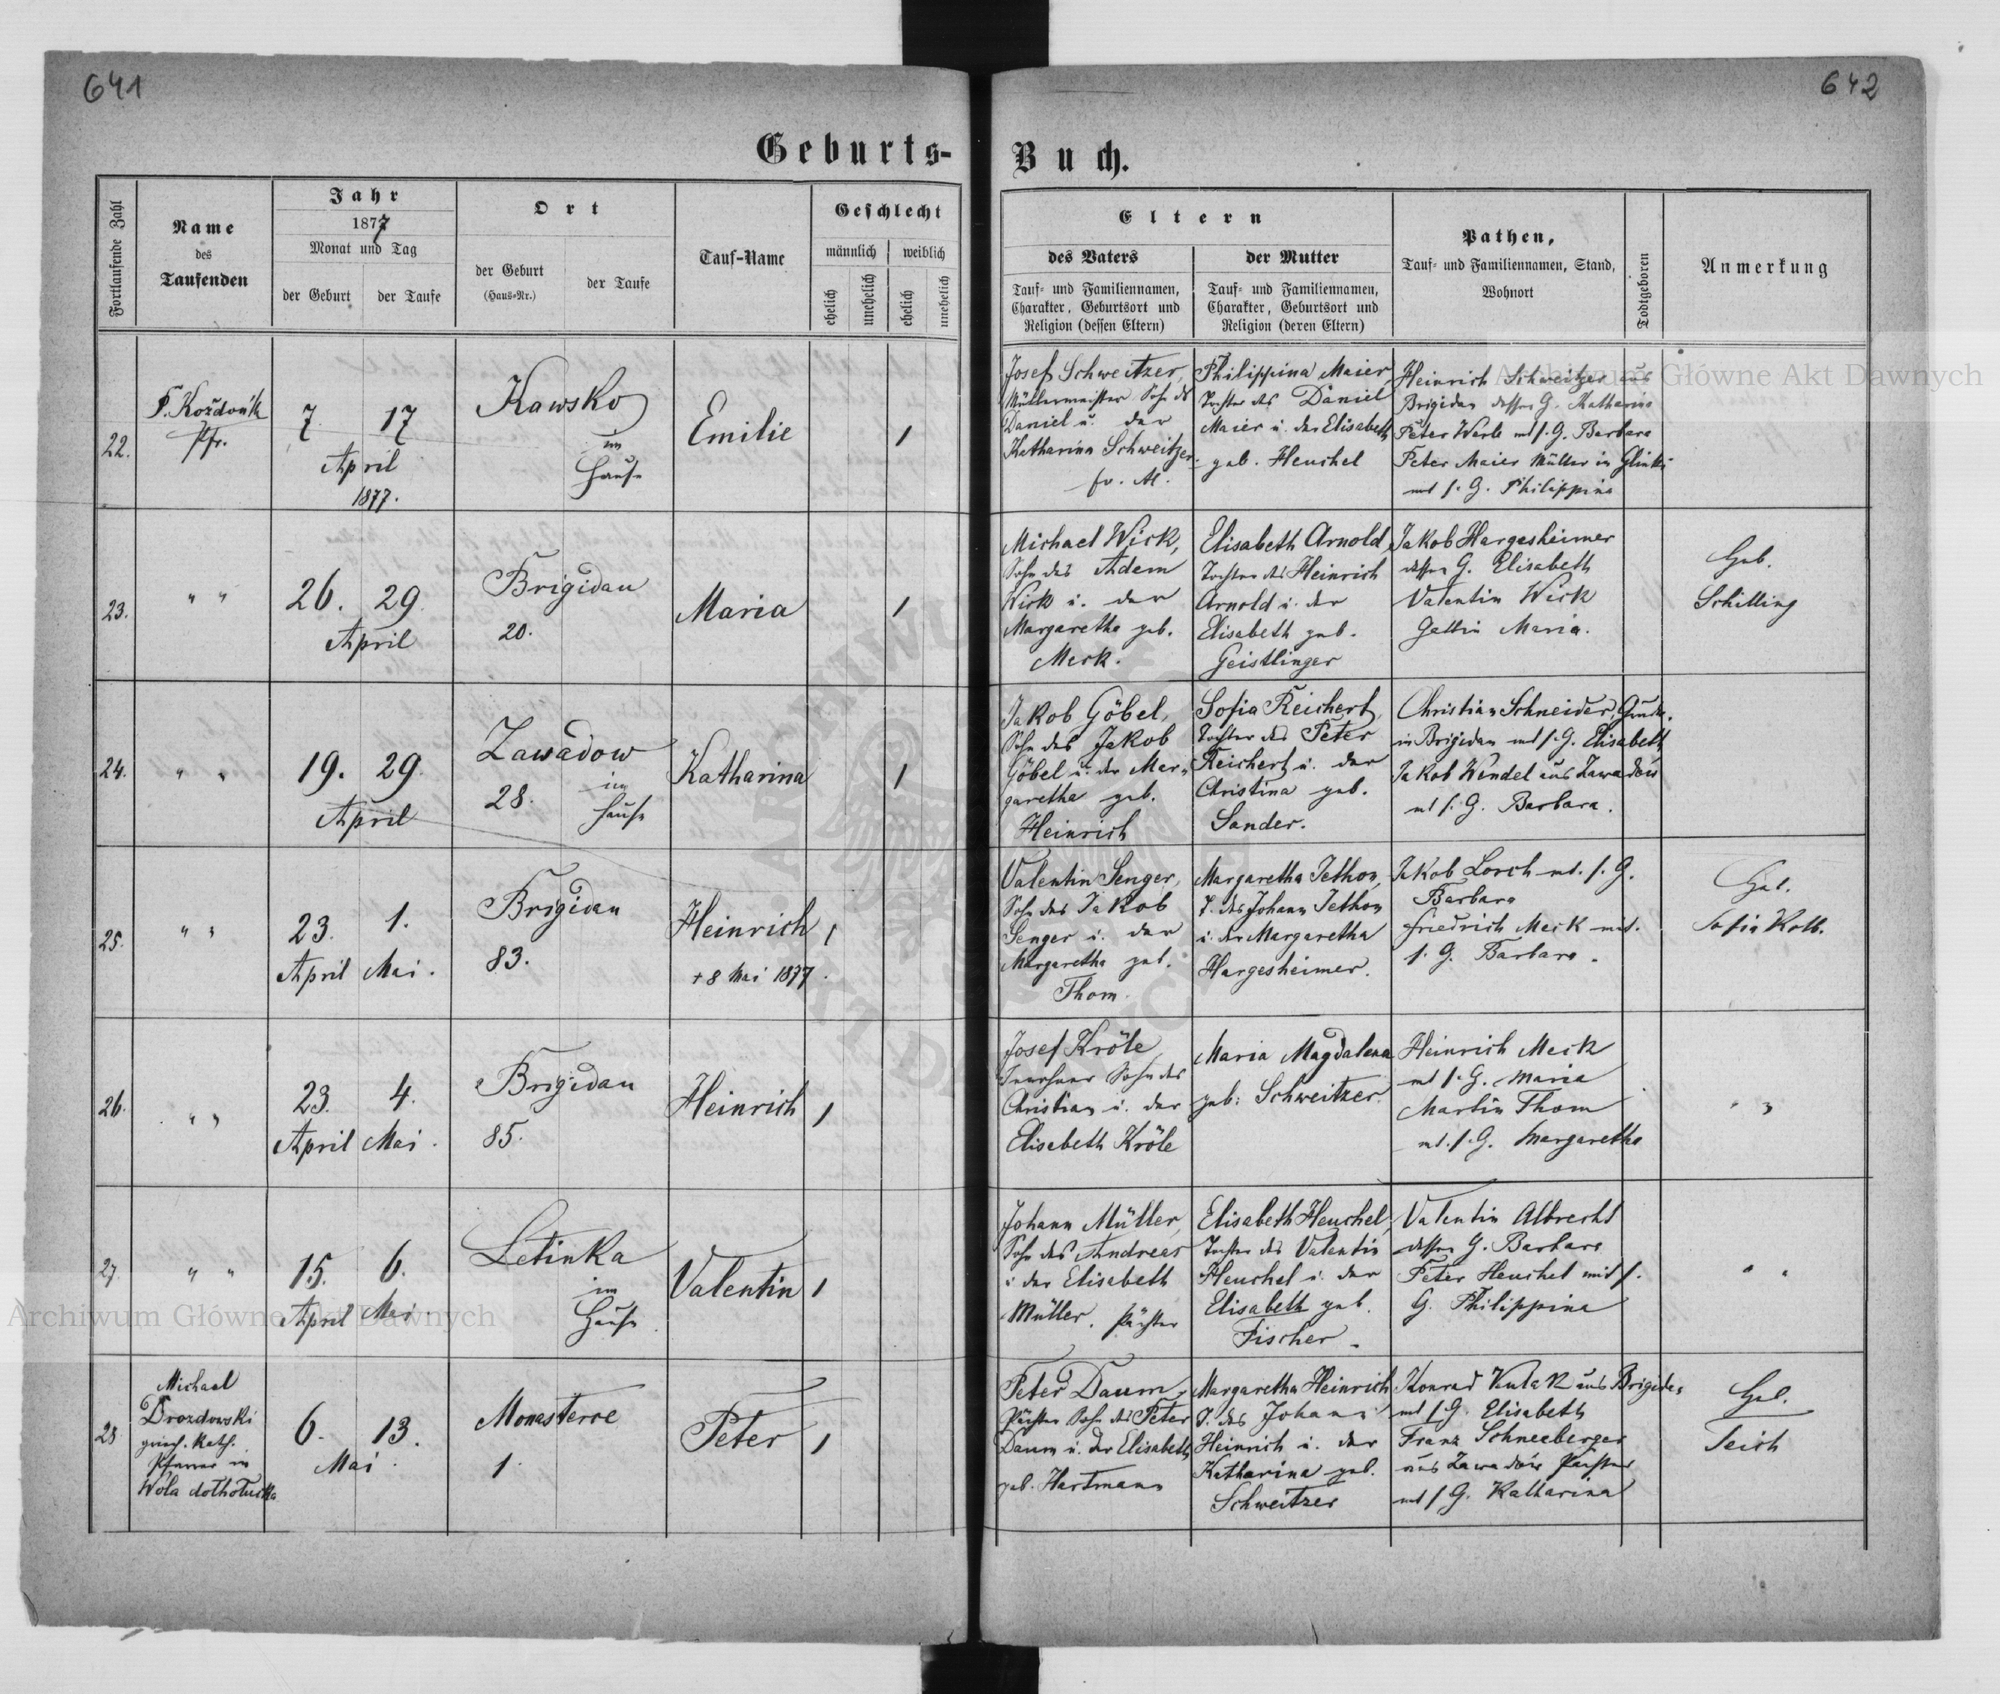 641
642
Geburts-
Buch.
Fortlaufende Zahl
Name
des
Taufenden
Jahr
1877
Monat und Tag
der Geburt
der Taufe
Ort
der Geburt
(Haus-Nr.)
der Taufe
Tauf-Name
Geschlecht
männlich
weiblich
ehelich
unehelich
ehelich
unehelich
Eltern
des Vaters
Tauf- und Familiennamen,
Charakter, Geburtsort und
Religion (dessen Eltern)
der Mutter
Tauf- und Familiennamen,
Charakter, Geburtsort und
Religion (deren Eltern)
Pathen,
Tauf- und Familiennamen, Stand,
Wohnort
Todtgeboren
Anmerkung
22.
Pfr.
7
17
April
1877.
Kawsko
im
Hause
Emilie
1
Josef Schweitzer,
Müllermeister Sohn des
Daniel u. der
Katharina Schweitzer
Philippina Maier
Tochter des Daniel
Maier u. der Elisabeth
geb. Heuchel
Heinrich Schweitzer aus
Brigidau dessen G. Katharina
Peter Werle mt s. G. Barbara
Peter Maier Müller in
mt s. G. Philippina
23.
" "
26.
29.
April
Brigidau
20.
Maria
1
Michael Wirk,
Sohn des Adam
Wirk u. der
Margaretha geb.
Merk.
Elisabeth Arnold,
Tochter des Heinrich
Arnold u. der
Elisabeth geb.
Geistlinger
Jakob Hargesheimer
dessen G. Elisabeth
Valentin Wirk
Gattin Maria.
Geb.
Schilling
24.
" "
19.
29.
April
Zawadow
28.
im
Hause
Katharina
1
Jakob Göbel,
Sohn des Jakob
Göbel u. der Mar-
garetha geb.
Heinrich
Sofia Reichert,
Tochter des Peter
Reichert u. der
Christina geb.
Sander.
Christian Schneider,
in Brigidau mt s. G. Elisabeth
Jakob Wendel aus Zawadow
mt s. G. Barbara.
25.
" "
23.
1.
April
Mai.
Brigidau
83.
Heinrich
+ 8 Mai 1877.
1
Valentin Senger,
Sohn des Jakob
Senger u. der
Margaretha geb.
Thom
Margaretha Jethon,
T. des Johann Jethon
u. der Margaretha
Hargesheimer.
Jakob Lorch mt. s. G.
Barbara
Friedrich Merk mt.
s. G. Barbara.
Geb.
Sofia Kolb.
26.
" "
23.
4.
April
Mai.
Brigidau
85.
Heinrich
1
Josef Kröle
Inwohner Sohn des
Christian u. der
Elisabeth Kröle
Maria Magdalena
geb: Schweitzer.
Heinrich Merk
mt s. G. Maria
Martin Thom
mt. s. G. Margaretha
" "
27.
" "
15.
6.
April
Mai
Letinka
im
Hause
Valentin
1
Johann Müller,
Sohn des Andreas
u der Elisabeth
Müller. Pächter
Elisabeth Heuchel,
Tochter des Valentin
Heuchel u. der
Elisabeth geb.
Fischer.
Valentin Albrecht
dessen G. Barbara
Peter Heuchel mit s.
G. Philippina
" "
28
Michael
Drozdowski
griech. Kath.
Pfarrer in
Wola
6.
13.
Mai.
1.
Peter
1
Peter Daum,
Pächter Sohn des Peter
Daum u. der Elisabeth
geb. Hartmann
Margaretha Heinrich
T. des Johann
Heinrich u. der
Katharina geb.
Schweitzer
Konrad Kulak aus Brigidau
mt s. G. Elisabeth
Franz Schneeberger
aus Zawadow Pächter
mt s G. Katharina
Geb.
Teich
Archiwum Główne Akt Dawnych
Archiwum Główne Akt Dawnych